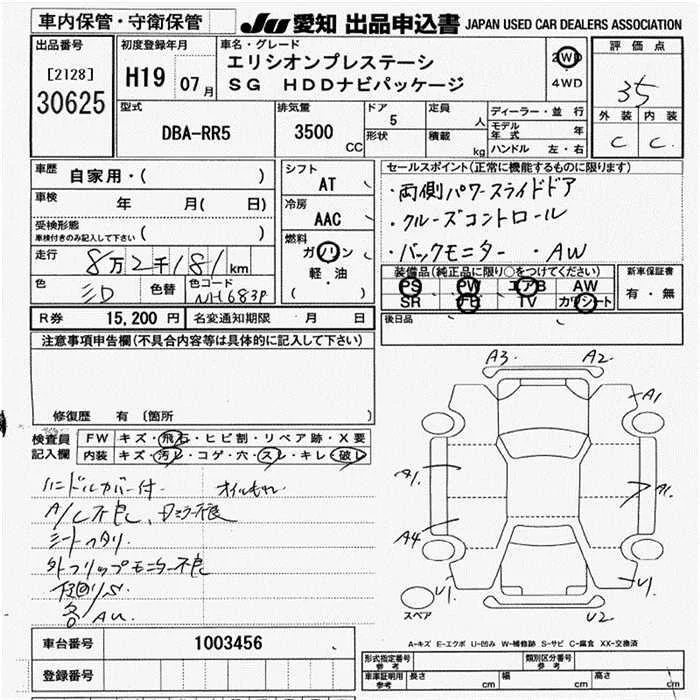 車内保管・守衛保管
JU 愛知 出品申込書 JAPAN USED CAR DEALERS ASSOCIATION
出品番号
[2128]
30625
初度登録年月
H19 07月
車名・グレード
エリシオンプレステーシ
SG HDDナビパッケージ
2WD
4WD
評価点
3.5
外装 内装
C C
型式
DBA-RR5
排気量
3500 CC
ドア 5
形状
定員 人
積載 kg
ディーラー・並行
モデル年式 年
ハンドル 左・右
車歴
自家用・( )
車検 年 月( 日)
受検形態
車検付きのみ記入して下さい ( )
走行 8万2千181 km
色 色替 色コード NH683P
シフト AT
冷房 AAC
燃料
ガソリン
軽・油
( )
セールスポイント(正常に機能するものに限ります)
・両側パワースライドドア
・クルーズコントロール
・バックモニター ・AW
装備品(純正品に限り○をつけてください)
PS PW エアB AW
SR TV カワシート
新車保証書
有・無
後日品
R券 15,200円 名変通知期限 月 日
注意事項申告欄(不具合内容等は具体的に記入して下さい)
修復歴 有 〔箇所 〕
検査員記入欄
FW キズ・飛石・ヒビ割・リペア跡・X要
内装 キズ・汚レ・コゲ・穴・スレ・キレ・破レ
ハンドルカバー付 オイルもれ
A/C不良、
シートヘタリ
外フリップモニター不良
下廻りS
各AU
A3 A2
A1
A1 A1
A4
U1 U1
U2
スペア
A-キズ E-エクボ U-凹み W-補修跡 S-サビ C-腐食 XX-交換済
車台番号 1003456
登録番号
形式指定番号 参考 類別区分番号 参考
車庫証明用 参考 長さ cm 幅 cm 高さ cm